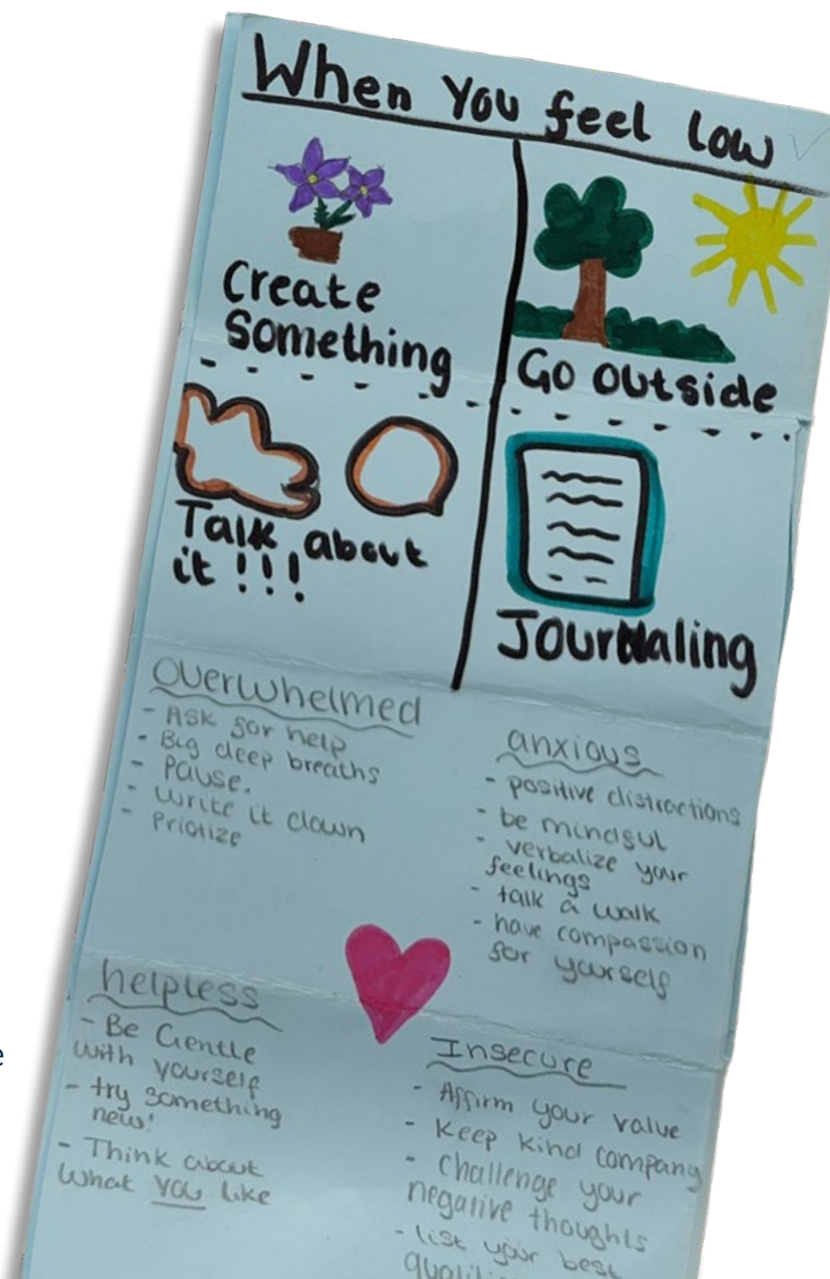 When You feel low
Create
Something
Go outside
Talk about
it !!!
Journaling
Overwhelmed
- Ask for help
- Big deep breaths
- Pause.
- Write it down
- Priotize
anxious
- positive distractions
- be mindful
- verbalize your
feelings
- talk a walk
- have compassion
for yourself
helpless
- Be Gentle
with yourself
- try something
new!
- Think about
what YOU like
Insecure
- Affirm your value
- Keep kind company
- Challenge your
negative thoughts
- list your best
e